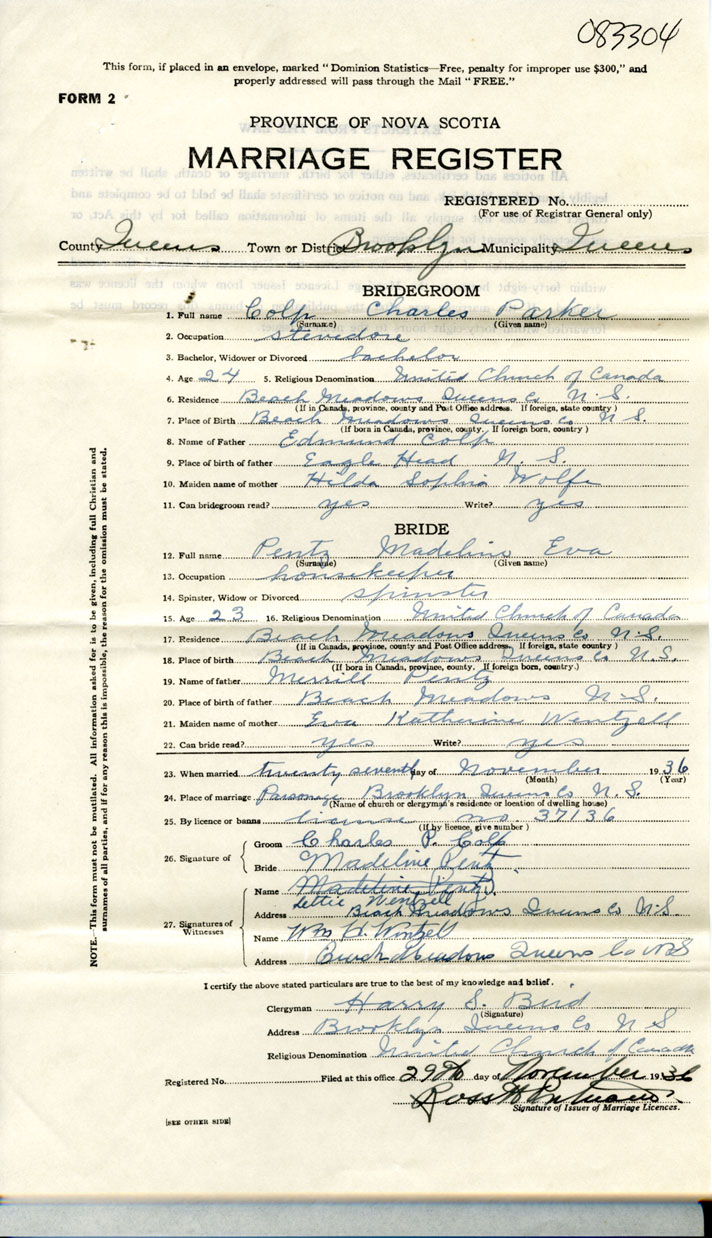 083304
This form, if placed in an envelope, marked "Dominion Statistics—Free, penalty for improper use $300," and
properly addressed will pass through the Mail "FREE."
FORM 2
PROVINCE OF NOVA SCOTIA
MARRIAGE REGISTER
REGISTERED No.
(For use of Registrar General only)
County Queens Town or District Brooklyn Municipality Queens
BRIDEGROOM
1. Full name Colp Charles Parker
(Surname) (Given name)
2. Occupation stevedore
3. Bachelor, Widower or Divorced bachelor
4. Age 24 5. Religious Denomination United Church of Canada
6. Residence Beach Meadows Queens Co N.S.
(If in Canada, province, county and Post Office address. If foreign, state country)
7. Place of Birth Beach Meadows Queens Co N.S.
(If born in Canada, province, county. If foreign born, country)
8. Name of Father Edmund Colp
9. Place of birth of father Eagle Head N.S.
10. Maiden name of mother Hilda Sophia Wolfe
11. Can bridegroom read? yes Write? yes
BRIDE
12. Full name Pentz Madeline Eva
(Surname) (Given name)
13. Occupation housekeeper
14. Spinster, Widow or Divorced spinster
15. Age 23 16. Religious Denomination United Church of Canada
17. Residence Beach Meadows Queens Co N.S.
(If in Canada, province, county and Post Office address. If foreign, state country)
18. Place of birth Beach Meadows Queens Co N.S.
(If born in Canada, province, county. If foreign born, country.)
19. Name of father Merrill Pentz
20. Place of birth of father Beach Meadows N.S.
21. Maiden name of mother Eva Katherine Wentzell
22. Can bride read? yes Write? yes
23. When married twenty seventh day of November 1936
(Month) (Year)
24. Place of marriage Parsonage Brooklyn Queens Co N.S.
(Name of church or clergyman's residence or location of dwelling house)
25. By licence or banns license no. 37136
(If by licence, give number)
26. Signature of
Groom Charles P. Colp
Bride Madeline Pentz
27. Signatures of Witnesses
Name Madeline Pentz
Lettie Wentzell
Address Beach Meadows Queens Co N.S.
Name Wm H. Wentzell
Address Beach Meadows Queens Co NS
I certify the above stated particulars are true to the best of my knowledge and belief.
Clergyman Harry S. Bird
(Signature)
Address Brooklyn Queens Co N S
Religious Denomination United Church of Canada
Registered No. Filed at this office 29th day of November 1936
Ross
Signature of Issuer of Marriage Licences.
[SEE OTHER SIDE]
NOTE.—This form must not be mutilated. All information asked for is to be given, including full Christian and
surnames of all parties, and if for any reason this is impossible, the reason for the omission must be stated.